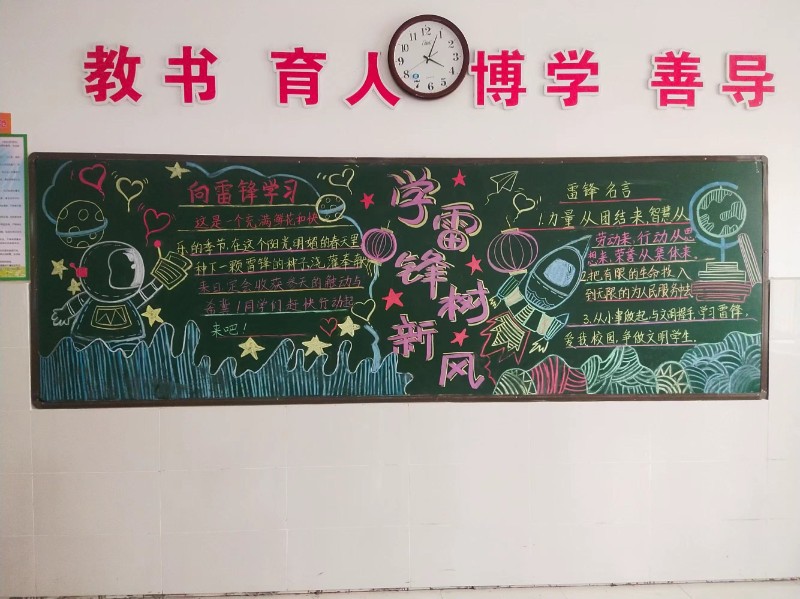 教书 育人 博学 善导
向雷锋学习
这是一个充满鲜花和快
乐的季节,在这个阳光明媚的春天里
种下一颗雷锋的种子,浇灌奉献
来日定会收获冬天的融动与
希望!同学们赶快行动起
来吧!
学雷锋树新风
雷锋名言
1.力量从团结来,智慧从
劳动来,行动从思
想来,荣誉从集体来
2.把有限的生命投入
到无限的为人民服务去
3.从小事做起,与文明握手,学习雷锋,
爱我校园,争做文明学生.